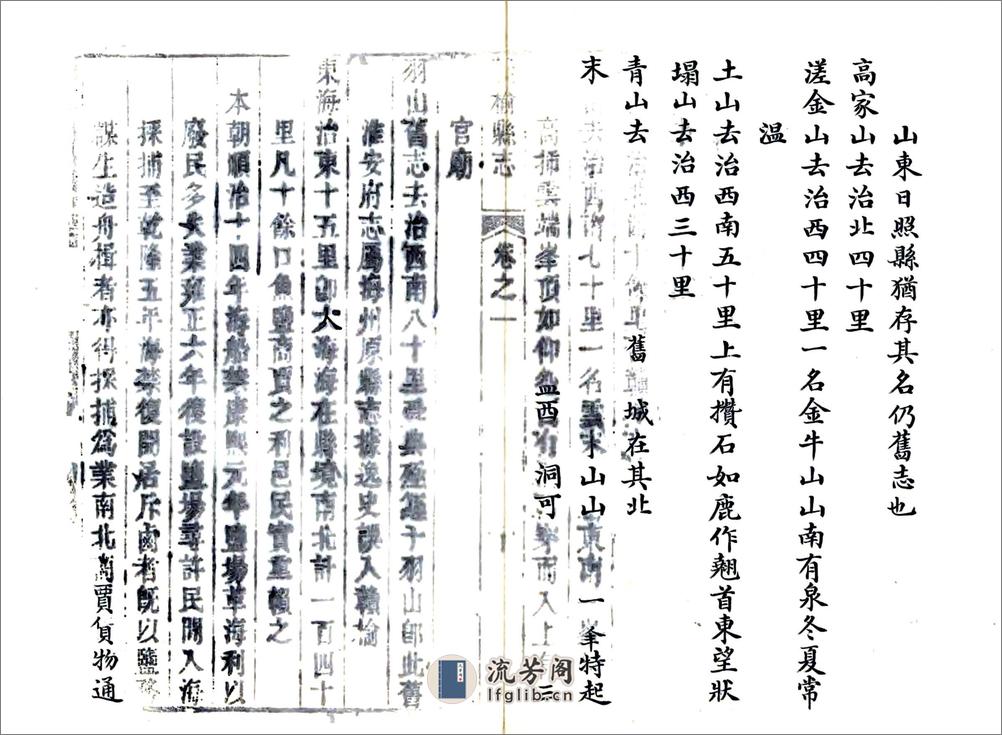 山東日照縣猶存其名仍舊志也
高家山去治北四十里
溠金山去治西四十里一名金牛山山南有泉冬夏常
温
土山去治西南五十里上有攢石如鹿作翹首東望狀
塌山去治西三十里
青山去舊城在其北
末去治西南七十里一名雲末山山東南一峯特起
高插雲端峯頂如仰盆酉有洞可容而入上
榆縣志 卷之一
官廟
羽山舊志去治西南八十里堯典殛鯀于羽山卽此舊
淮安府志屬海州原縣志據逸史誤入贛榆
東海治東十五里卽大海海在縣境南北計一百四十
里凡十餘口魚鹽商賈之利邑民實重賴之
本朝順治十四年海船禁康熙元年鹽場革海利以
廢民多失業雍正六年復設鹽場尋許民間入海
採捕至乾隆五年海禁復開居斥鹵者旣以鹽
謀生造舟楫者亦得採捕爲業南北商賈貨物通
流芳阁
lfglib.cn